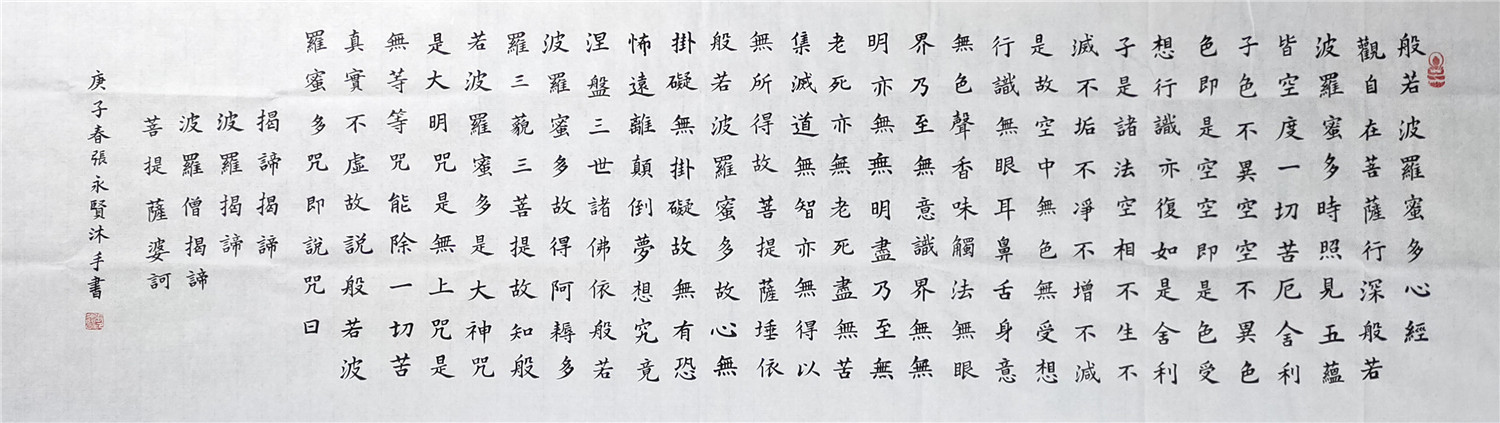 般若波羅蜜多心經
觀自在菩薩行深般若
波羅蜜多時照見五蘊
皆空度一切苦厄舍利
子色不異空空不異色
色即是空空即是色受
想行識亦復如是舍利
子是諸法空相不生不
滅不垢不凈不增不減
是故空中無色無受想
行識無眼耳鼻舌身意
無色聲香味觸法無眼
界乃至無意識界無無
明亦無無明盡乃至無
老死亦無老死盡無苦
集滅道無智亦無得以
無所得故菩提薩埵依
般若波羅蜜多故心無
掛礙無掛礙故無有恐
怖遠離顛倒夢想究竟
涅盤三世諸佛依般若
波羅蜜多故得阿耨多
羅三藐三菩提故知般
若波羅蜜多是大神咒
是大明咒是無上咒是
無等等咒能除一切苦
真實不虛故説般若波
羅蜜多咒即説咒曰
揭諦揭諦
波羅揭諦
波羅僧揭諦
菩提薩婆訶
庚子春張永賢沐手書